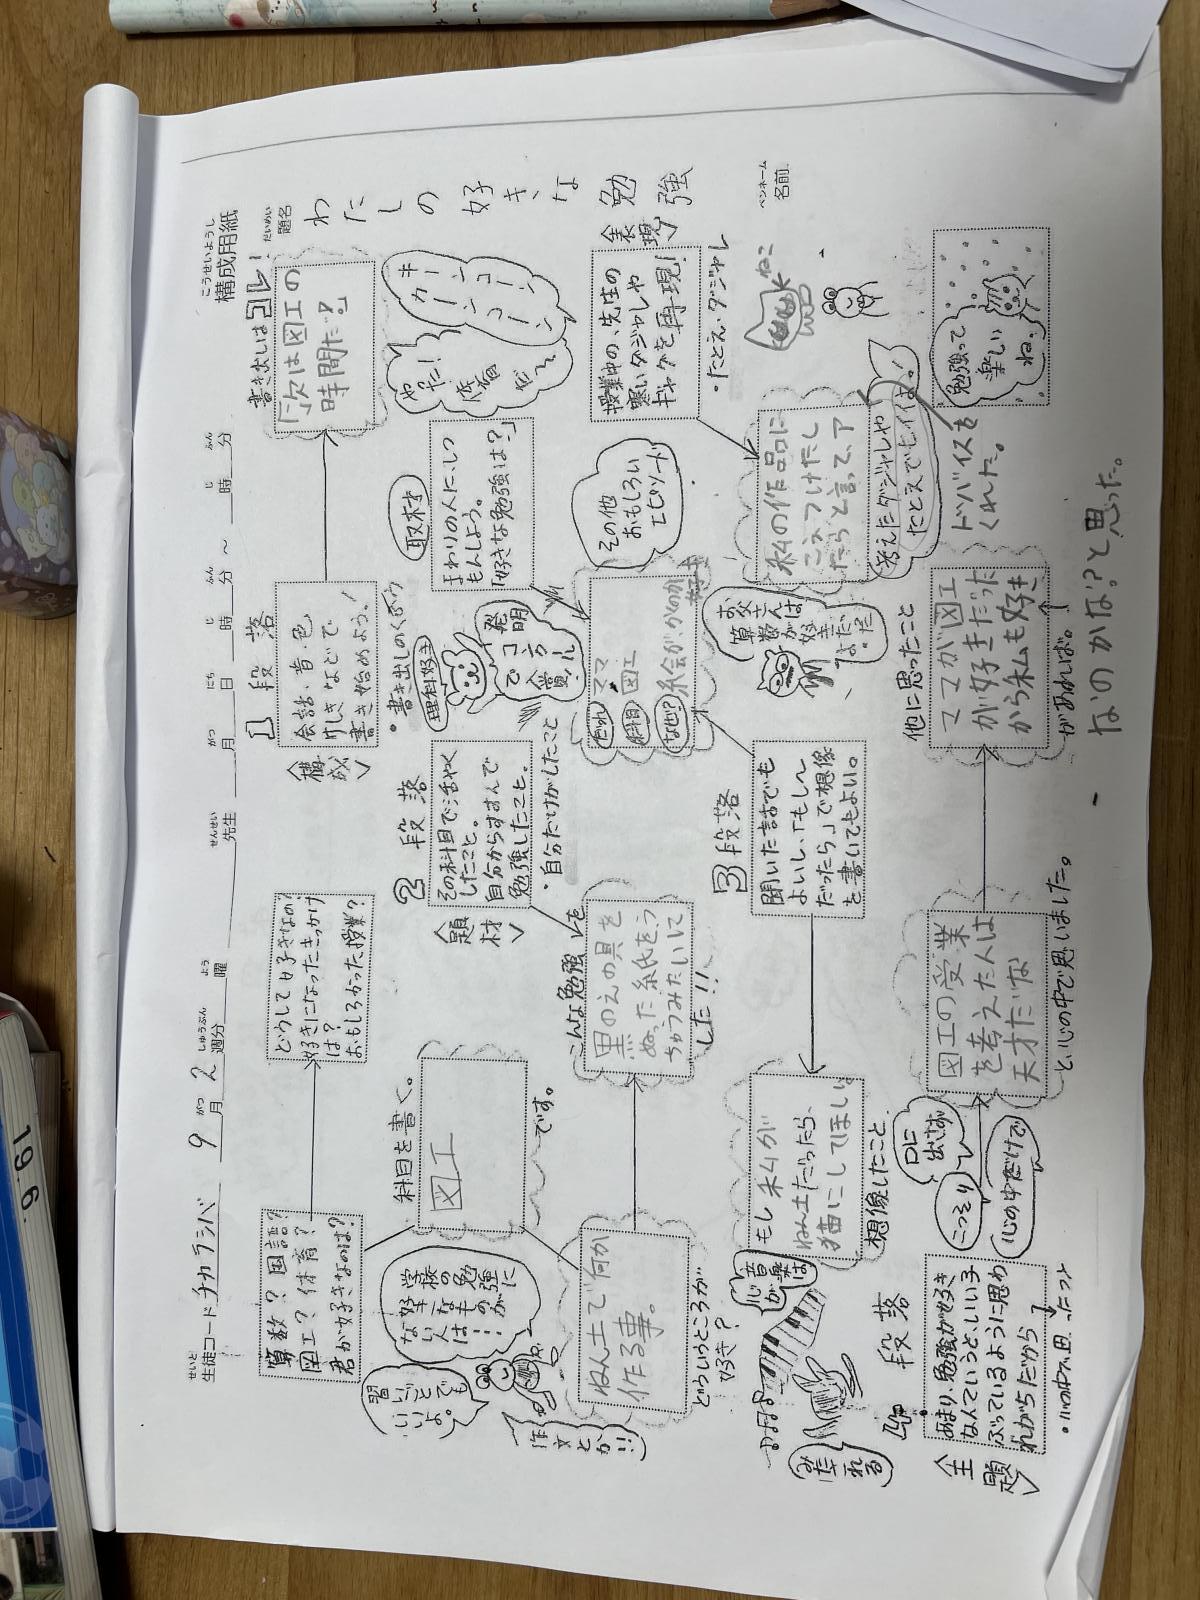 こうせいようし
構成用紙
せいと
生徒コード チカラシバ 9月 2週分 曜 先生 月 日 時 分 ～ 時 分
がつ しゅうぶん よう せんせい がつ にち じ ふん じ ふん
だいめい
題名
わたしの好きな勉強
ペンネーム
名前
ねこ
算数？国語？
図工？体育？
君が好きなのは？
どうして好きなの？
好きになったきっかけ
は？
おもしろかった授業？
1段落
〈構成〉
会話・音・色
行しきなどで
書き始めよう！
・書き出しのくふう
書き出しはコレ！
「次は図工の
時間だ！」
キーンコーン
カーンコーン
やった！
体育だ～
習いごとでも
いいよ。
学校の勉強に
好きなものが
ない人は…
作文とか!!
科目を書く。
図工
です。
2段落
〈題材〉
その科目で活やく
したこと。
自分からすすんで
勉強したこと。
・自分だけがしたこと
理科好き
発明で
コンクール
入賞!!
取材
まわりの人にしつ
もんしよう。
「好きな勉強は？」
〈表現〉
授業中の、先生の
寒いダジャレや
ギャグを再現！
・たとえ・ダジャレ
ねん土で何か
作る事。
どういうところが
好き？
こんな勉強
黒のえの具を
ぬった紙をう
ちゅうみたいに
した!!
だれ ママ
科目 図工
なぜ？ 絵がかくのが
好き
その他
おもしろい
エピソード
3段落
聞いた話でも
よいし、「もし～
だったら」で想像
を書いてもよい。
お父さんは
算数が
好き
だよ。
私の作品に
こえつけたし
たらと言って、ア
ドバイスを
くれた。
考えたダジャレや
たとえでもイイよ！
音楽は
心が
みだれる
もし私が
ねん土だったら、
猫にしてほしい。
想像したこと
4段落
〈主題〉
あまり、勉強が好き
なんていうと、いい子
ぶっているように思わ
れがちだから
・心の中で思ったこと
口に
出さず
こっそり
心の中だけで
図工の受業
を考えた人は
天才だな
と、心の中で思いました。
他に思ったこと
ママが図工
が好きだった
から私も好き
があれば。
なのかな？と思った。
勉強って
楽しい
ね。
19.6.